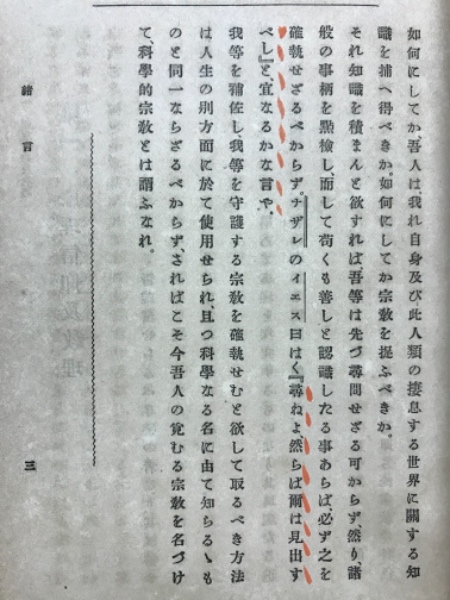 如何にしてか、吾人は、我れ自身及び此人類の棲息する世界に關する知
識を捕へ得べきか。如何にしてか宗敎を捉ふべきか。
それ知識を積まんと欲すれば吾等は先づ尋問せざる可からず、然り、諸
般の事柄を點檢し、而して苟くも善しと認識したる事あらば、必ず之を
確執せざるべからず。ナザレのイエス曰はく『尋ねよ、然らば爾は見出す
べし』と、宜なるかな言や。
我等を補佐し、我等を守護する宗敎を確執せむと欲して取るべき方法
は人生の別方面に於て使用せられ、且つ科學なる名に由て知らるゝも
のと同一ならざるべからず、さればこそ今吾人の覓むる宗敎を名づけ
て、科學的宗敎とは謂ふなれ。
緖言
三